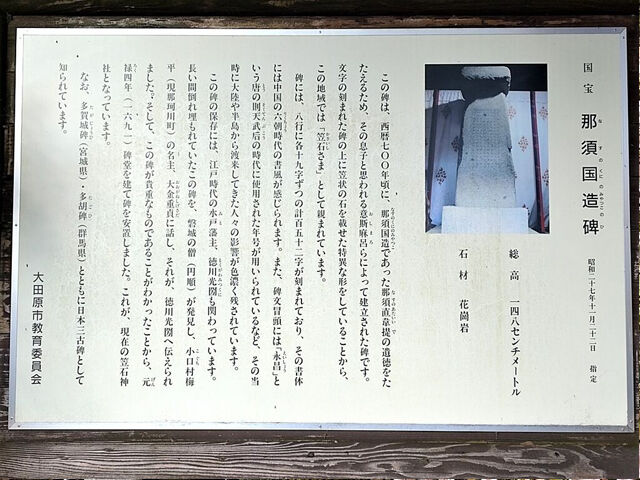 国宝 那須国造碑 昭和二十七年十一月二十二日 指定
なすのくにのみやつこのひ
総高 一四八センチメートル
石材 花崗岩
この碑は、西暦七〇〇年頃に、那須国造であった那須直韋提の遺徳をた
たえるため、その息子と思われる意斯麻呂らによって建立された碑です。
文字の刻まれた碑の上に笠状の石を載せた特異な形をしていることから、
この地域では「笠石さま」として親まれています。
碑には、八行に各十九字ずつの計百五十二字が刻まれており、その書体
には中国の六朝時代の書風が感じられます。また、碑文冒頭には「永昌」と
いう唐の則天武后の時代に使用された年号が用いられているなど、その当
時に大陸や半島から渡来してきた人々の影響が色濃く残されています。
この碑の保存には、江戸時代の水戸藩主、徳川光圀も関わっています。
長い間倒れ埋もれていたこの碑を、磐城の僧（円順）が発見し、小口村梅
平（現那珂川町）の名主、大金重貞に話し、それが、徳川光圀へ伝えられ
ました。そして、この碑が貴重なものであることがわかったことから、元
禄四年（一六九一）碑堂を建て碑を安置しました。これが、現在の笠石神
社となっています。
なお、多賀城碑（宮城県）・多胡碑（群馬県）とともに日本三古碑として
知られています。
大田原市教育委員会